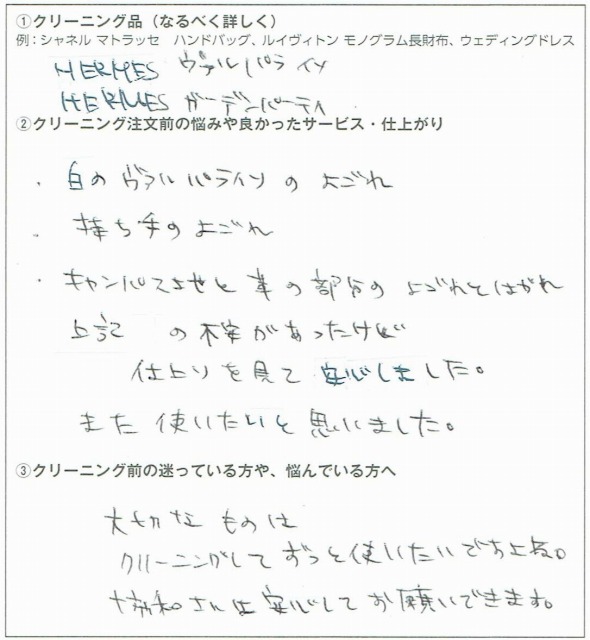 ①クリーニング品（なるべく詳しく）
例：シャネル マトラッセ　ハンドバッグ、ルイヴィトン モノグラム長財布、ウェディングドレス
HERMES ヴァルパライソ
HERMES ガーデンパーティ
②クリーニング注文前の悩みや良かったサービス・仕上がり
・白のヴァルパライソのよごれ
・持ち手のよごれ
・キャンバスよせと革の部分のよごれとはがれ
上記の不安があったけど
仕上りを見て安心しました。
また使いたいと思いました。
③クリーニング前の迷っている方や、悩んでいる方へ
大切なものは
クリーニングしてずっと使いたいですよね。
協和さんは安心してお願いできます。